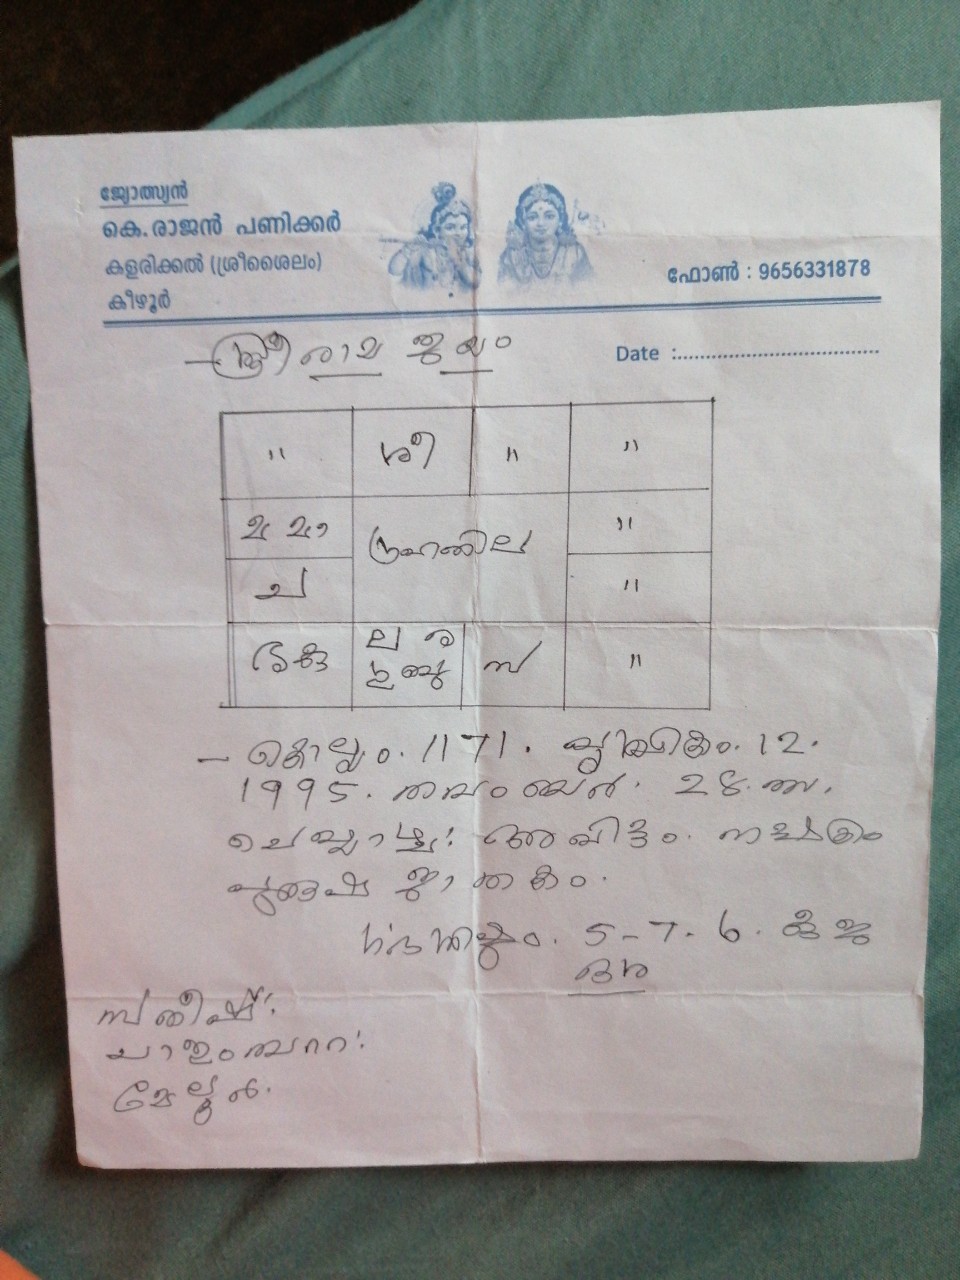 ജ്യോത്സ്യൻ
കെ. രാജൻ പണിക്കർ
കളരിക്കൽ (ശ്രീശൈലം)
കീഴൂർ
ഫോൺ : 9656331878
ശ്രീ രാമ ജയം
Date :
" ശി " "
മ മാ "
ഗ്രഹനില
ച "
ല ര
സ "
കൊല്ലം. 1171. വൃശ്ചികം. 12.
1995. നവംബർ. 28.
ചൊവ്വാഴ്ച: അവിട്ടം. നക്ഷത്രം
പുരുഷ ജാതകം.
5-7. 6. കുജ
ദശ
സതീഷ്: